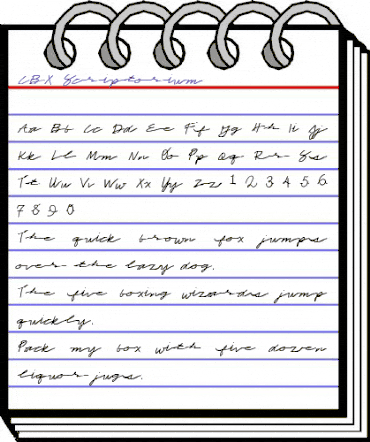 CBX Scriptorium
Aa Bb Cc Dd Ee Ff Gg Hh Ii Jj
Kk Ll Mm Nn Oo Pp Qq Rr Ss
Tt Uu Vv Ww Xx Yy Zz 1 2 3 4 5 6
7 8 9 0
The quick brown fox jumps
over the lazy dog.
The five boxing wizards jump
quickly.
Pack my box with five dozen
liquor jugs.